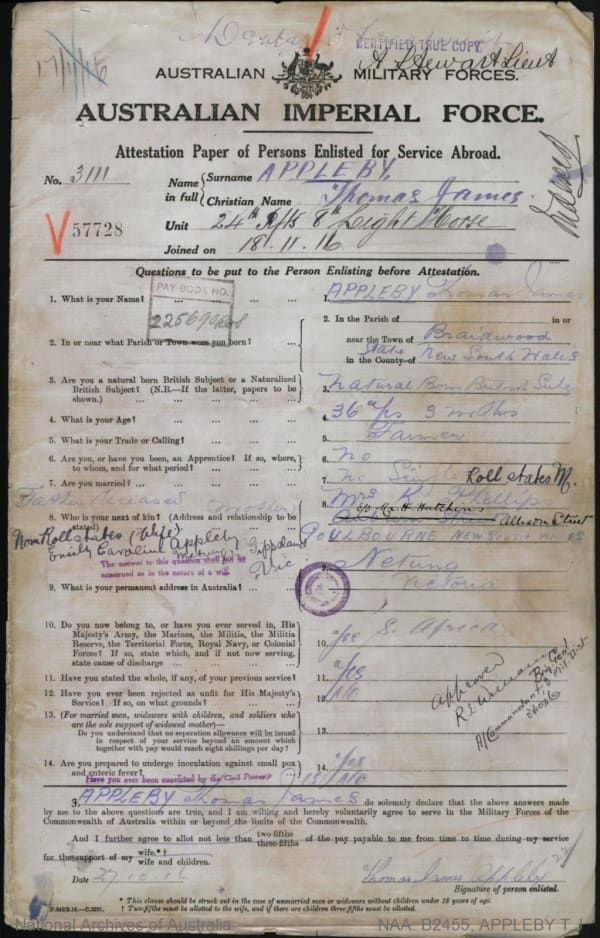 CERTIFIED TRUE COPY
17/11/16
A Stewart Lieut
AUSTRALIAN MILITARY FORCES.
AUSTRALIAN IMPERIAL FORCE.
Attestation Paper of Persons Enlisted for Service Abroad.
No. 3111
Name in full { Surname APPLEBY
Christian Name Thomas James.
V 57728
Unit 24th Rfts 8th Light Horse
Joined on 18.11.16
Questions to be put to the Person Enlisting before Attestation.
PAY BOOK NO.
1. What is your Name? ... ... ... 1. APPLEBY Thomas James
2. In or near what Parish or Town were you born? ... 2. In the Parish of in or
near the Town of Braidwood
in the County of State New South Wales
3. Are you a natural born British Subject or a Naturalized
British Subject? (N.B.—If the latter, papers to be
shown.) ... ... ... 3. Natural Born British Subj
4. What is your Age? ... ... ... 4. 36 yrs 3 mths
5. What is your Trade or Calling? ... ... 5. Farmer
6. Are you, or have you been, an Apprentice? If so, where,
to whom, and for what period? ... ... 6. No
7. Are you married? ... ... ... 7. No Single Roll states M.
Father Deceased Mother
8. Who is your next of kin? (Address and relationship to be
stated) 8. Mrs K. Phillip
c/o Mr H. Hutchins
Allison Street
GOULBOURNE NEW SOTH WALES
Nom Roll states (Wife)
Emily Caroline Appleby
Metung, Gippsland
Vic
The answer to this question shall not be
construed as in the nature of a will.
9. What is your permanent address in Australia? ... 9. Netung
Victoria
10. Do you now belong to, or have you ever served in, His
Majesty's Army, the Marines, the Militia, the Militia
Reserve, the Territorial Force, Royal Navy, or Colonial
Forces? If so, state which, and if not now serving,
state cause of discharge ... ... ... 10. Yes S. Africa
11. Have you stated the whole, if any, of your previous service? 11. Yes
12. Have you ever been rejected as unfit for His Majesty's
Service? If so, on what grounds? ... ... 12. No
13. (For married men, widowers with children, and soldiers who
are the sole support of widowed mother)—
Do you understand that no separation allowance will be issued
in respect of your service beyond an amount which
together with pay would reach eight shillings per day? 13.
Approved
R E Williams
Brig Genl
A/Commandant, 3 Mil. Dist
14. Are you prepared to undergo inoculation against small pox
and enteric fever? 14. Yes
Have you ever been convicted by the Civil Power? 15 No
I, APPLEBY Thomas James do solemnly declare that the above answers made
by me to the above questions are true, and I am willing and hereby voluntarily agree to serve in the Military Forces of the
Commonwealth of Australia within or beyond the limits of the Commonwealth.
And I further agree to allot not less than two-fifths three-fifths of the pay payable to me from time to time during my service
for the support of my wife.*† wife and children.
Date 27.10.16 Thomas James Appleby
Signature of person enlisted.
* This clause should be struck out in the case of unmarried men or widowers without children under 18 years of age.
† Two-fifths must be allotted to the wife, and if there are children three-fifths must be allotted.
National Archives of Australia NAA: B2455, APPLEBY T J